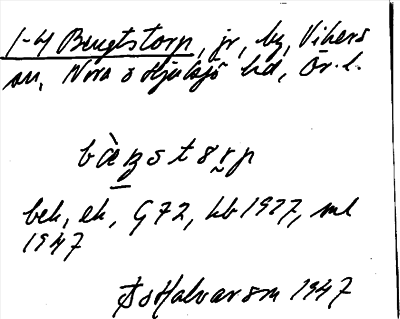 1-4 Bengtstorp, jr, by, Vikers
sn, Nora o Hjulsjö hd, Ör. l.
bàŋstørp
bek, ek, G72, kb 1927, ml
1947
Bo Halvarson 1947